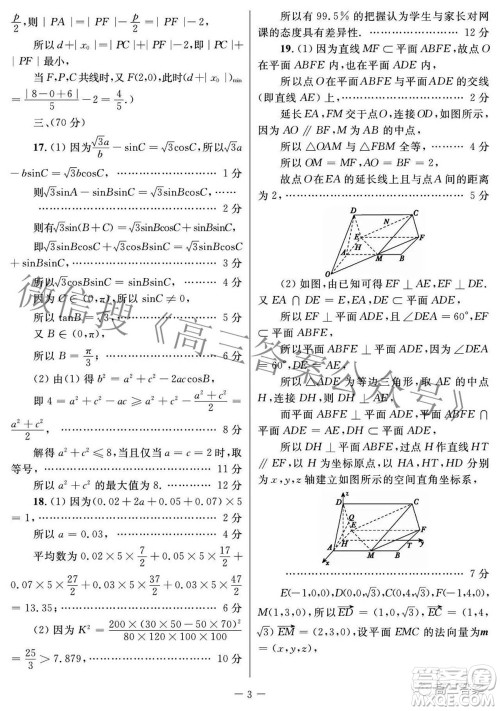 p/2，则｜PA｜=｜PF｜．
所以 d+｜x₀｜=｜PC｜+｜PA｜-2=｜PC｜+
｜PF｜-2，即当｜PC｜+｜PF｜最小时，d+｜x₀｜
最小，
当 F、P、C 共线时，又 F(2,0)，此时(d+｜x₀｜)min
=｜8-0+6｜/5-2=4/5．)
三、(70 分)
17.(1)因为√3a/b-sinC=√3cosC，所以√3
a-bsinC=√3bcosC， 1 分
则√3sinA-sinBsinC=√3sinBcosC，
2 分
所以有√3sin(B+C)=√3sinBcosC+sinBsinC，
即√3sinBcosC+√3cosBsinC=√3sinBcosC+
sinBsinC， 3 分
所以√3cosBsinC=sinBsinC， 4 分
因为 C∈(0,π)，所以 sinC≠0，
所以 tanB=√3， 5 分
又 B∈(0,π)，
所以 B=π/3； 6 分
(2)由(1)得 b²=a²+c²-2accosB，
即 4=a²+c²-ac≥a²+c²-(a²+c²)/2=
(a²+c²)/2， 9 分
解得 a²+c²≤8，当且仅当 a=c=2 时，取
等号， 11 分
所以 a²+c² 的最大值为 8. 12 分
18.(1)因为(0.02+2a+0.05+0.07)×5
=1， 2 分
所以 a=0.03， 4 分
平均数为 0.02×5×7/2+0.05×5×17/2+0.07
×5×27/2+0.03×5×37/2+0.03×5×47/2
=13.35； 6 分
(2)因为 K²=200×(30×50-50×70)²/80×120×100×100
=25/3>7.879， 10 分
所以有 99.5% 的把握认为学生与家长对网
课的态度具有差异性． 12 分
19.(1)因为直线 MF⊂平面 ABFE，故点 O
在平面 ABFE 内也在平面 ADE 内，
所以点 O 在平面 ABFE 与平面 ADE 的交线
(即直线 AE)上， 2 分
延长 EA，FM 交于点 O，连接 OD，如图所示，
因为 AO∥BF，M 为 AB 的中点，
所以△OAM 与△FBM 全等， 4 分
所以 OM=MF，AO=BF=2，
故点 O 在 EA 的延长线上且与点 A 间的距离
为 2， 5 分
D
C
N
E
F
A
M
B
O
(2)如图，由已知可得 EF⊥AE，EF⊥DE，
又 EA∩DE=E，所以 EF⊥平面 ADE，
所以 EF⊂平面 ABFE，
所以平面 ABFE⊥平面 ADE，因为∠DEA
=60°，DE=AE，
所以△ADE 为等边三角形，取 AE 的中点
H，连接 DH，则 DH⊥AE，
而平面 ABFE⊥平面 ADE，平面 ABFE∩
平面 ADE=AE，
所以 DH⊥平面 ABFE，过点 H 作直线 HT
∥EF 以 H 为坐标原点，以 HA，HT，HD 分别
为 x，y，z 轴建立如图所示的空间直角坐标系，
z
D
C
E
F
H
A
M
B
x
y
7 分
E(-1,0,0)，D(0,0,√3)，C(0,4,√3)，F(-1,4,
0)，M(1,2,0)，所以→ED=(1,0,√3)，→EC=(1,4,
√3)→EM=(2,2,0)，设平面 EMC 的法向量为 m
=(x,y,z)，
微信搜《高三答案公众号》
— 3 —